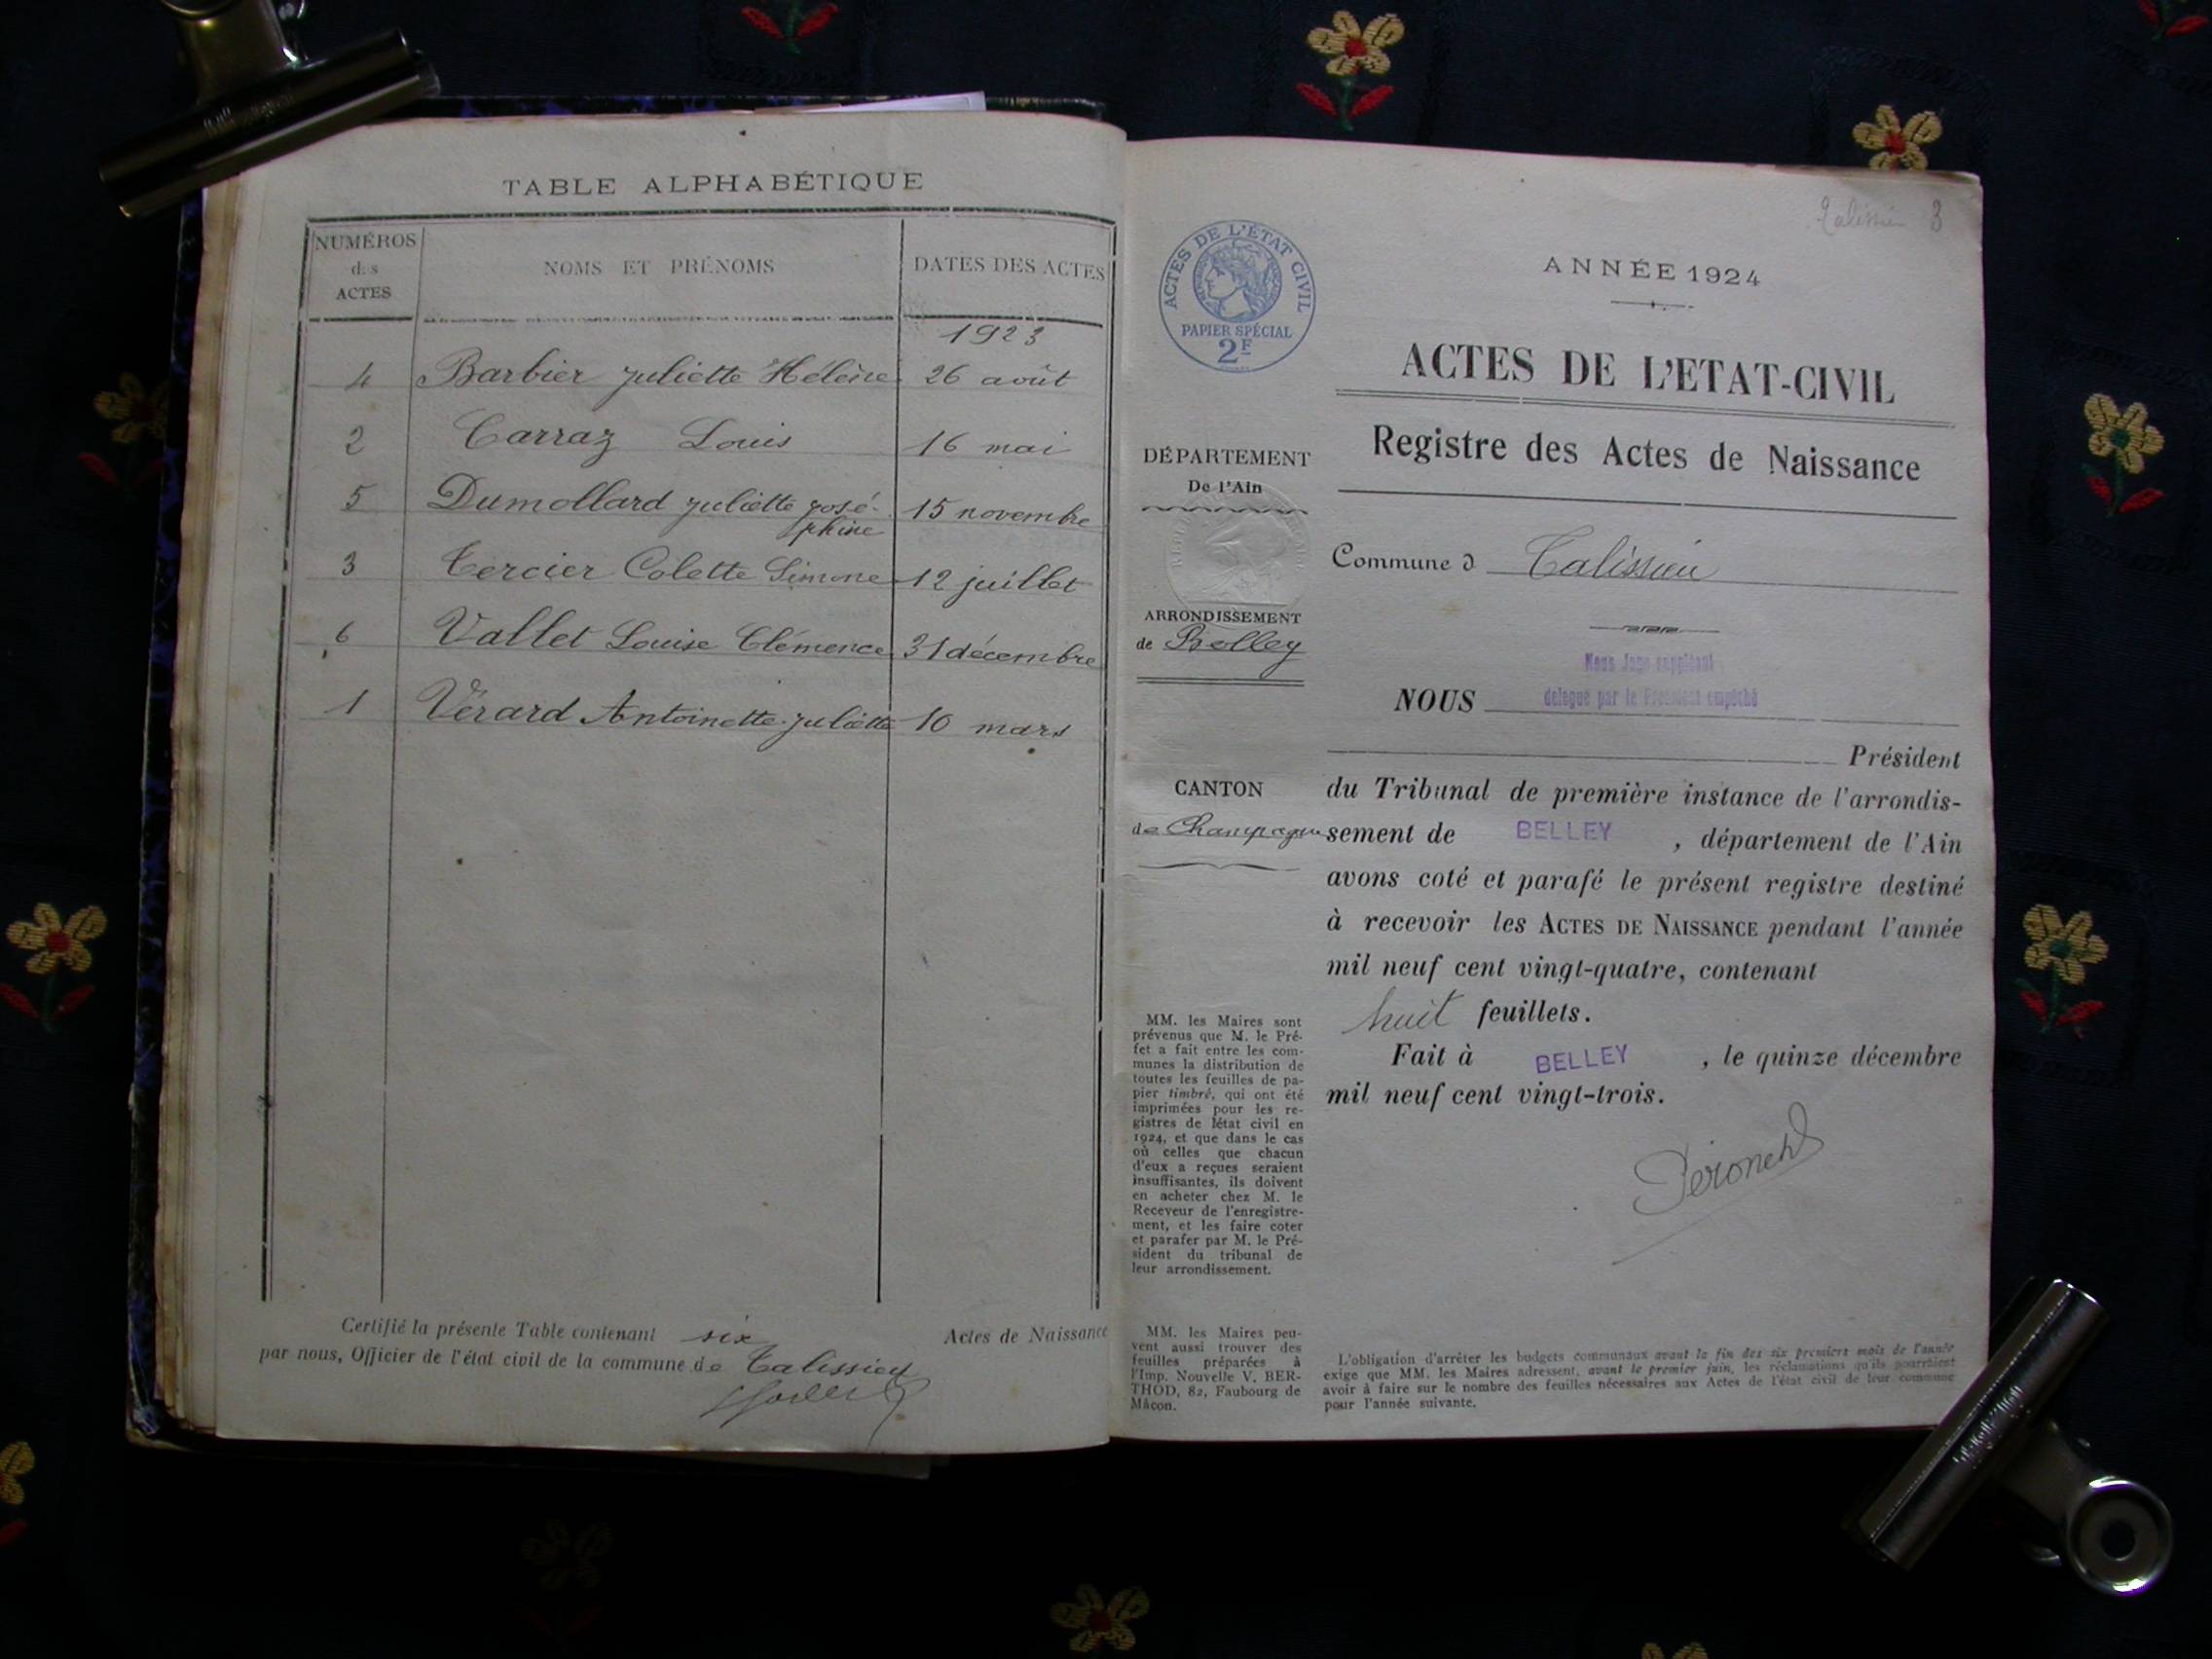 TABLE ALPHABÉTIQUE
NUMÉROS
des
ACTES
NOMS ET PRÉNOMS
DATES DES ACTES
1923
4 Barbier Juliette Hélène 26 août
2 Carraz Louis 16 mai
5 Dumollard Juliette José-
phine 15 novembre
3 Tercier Colette Simone 12 juillet
6 Vallet Louise Clémence 31 décembre
1 Vérard Antoinette Juliette 10 mars
Certifié la présente Table contenant six Actes de Naissance
par nous, Officier de l'état civil de la commune de Talissieu
Talissieu 3
ACTES DE L'ÉTAT CIVIL
PAPIER SPÉCIAL
2F
DÉPARTEMENT
De l'Ain
ARRONDISSEMENT
de Belley
CANTON
de Champagne
MM. les Maires sont
prévenus que M. le Pré-
fet a fait entre les com-
munes la distribution de
toutes les feuilles de pa-
pier timbré, qui ont été
imprimées pour les re-
gistres de létat civil en
1924, et que dans le cas
où celles que chacun
d'eux a reçues seraient
insuffisantes, ils doivent
en acheter chez M. le
Receveur de l'enregistre-
ment, et les faire coter
et parafer par M. le Pré-
sident du tribunal de
leur arrondissement.
MM. les Maires peu-
vent aussi trouver des
feuilles préparées à
l'Imp. Nouvelle V. BER-
THOD, 82, Faubourg de
Mâcon.
ANNÉE 1924
ACTES DE L'ETAT-CIVIL
Registre des Actes de Naissance
Commune d Talissieu
Nous Juge suppléant
NOUS délégué par le Président empêché
Président
du Tribunal de première instance de l'arrondis-
sement de BELLEY , département de l'Ain
avons coté et parafé le présent registre destiné
à recevoir les ACTES DE NAISSANCE pendant l'année
mil neuf cent vingt-quatre, contenant
huit feuillets.
Fait à BELLEY , le quinze décembre
mil neuf cent vingt-trois.
L'obligation d'arrêter les budgets communaux avant la fin des six premiers mois de l'année
exige que MM. les Maires adressent, avant le premier juin, les réclamations qu'ils pourraient
avoir à faire sur le nombre des feuilles nécessaires aux Actes de l'état civil de leur commune
pour l'année suivante.